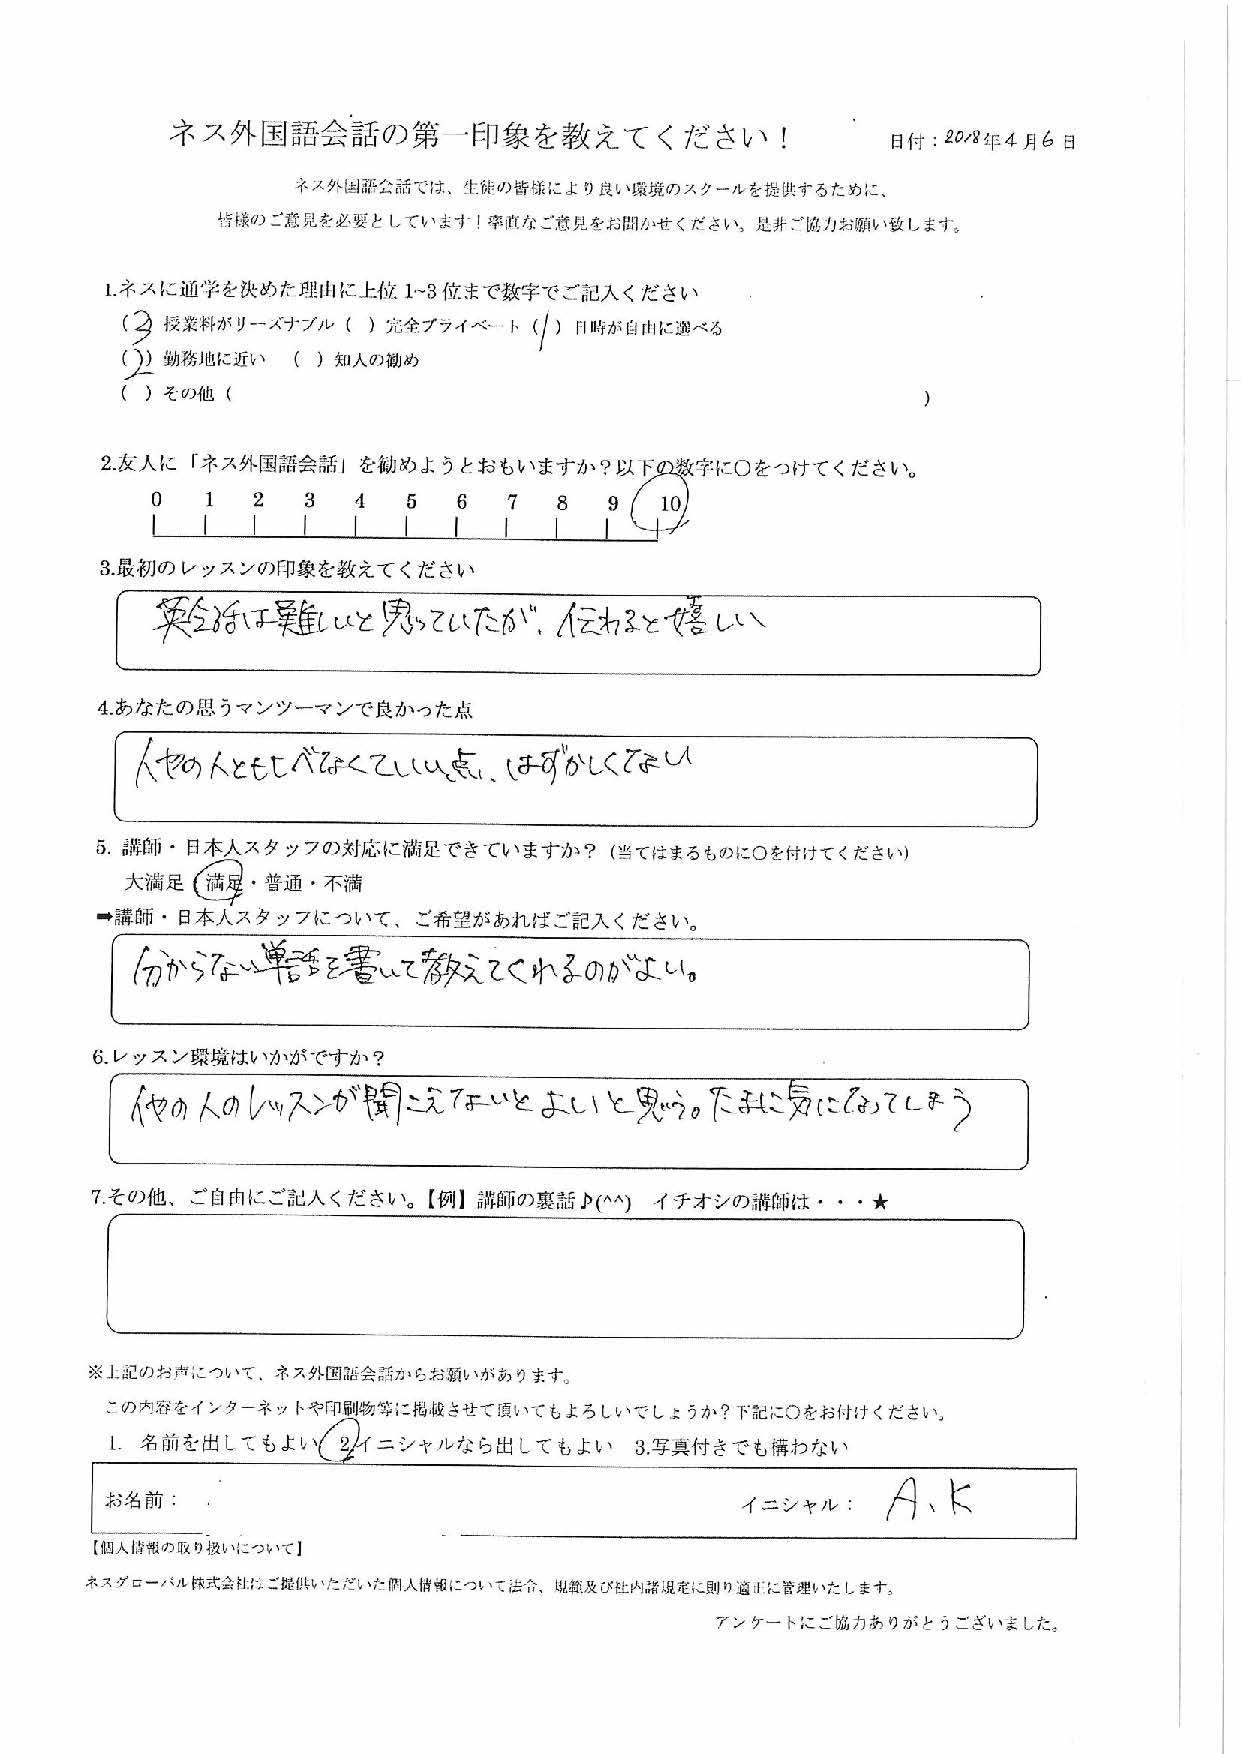 ネス外国語会話の第一印象を教えてください！
日付：2018年4月6日
ネス外国語会話では、生徒の皆様により良い環境のスクールを提供するために、
皆様のご意見を必要としています！率直なご意見をお聞かせください。是非ご協力お願い致します。
1.ネスに通学を決めた理由に上位 1~3 位まで数字でご記入ください
(3) 授業料がリーズナブル ( ) 完全プライベート (1) 日時が自由に選べる
(2) 勤務地に近い ( ) 知人の勧め
( ) その他 ( )
2.友人に「ネス外国語会話」を勧めようとおもいますか？以下の数字に〇をつけてください。
0 1 2 3 4 5 6 7 8 9 10
3.最初のレッスンの印象を教えてください
英会話は難しいと思っていたが、伝わると嬉しい
4.あなたの思うマンツーマンで良かった点
他の人とも比べなくていい点、はずかしくない
5. 講師・日本人スタッフの対応に満足できていますか？(当てはまるものに〇を付けてください)
大満足・満足・普通・不満
➡講師・日本人スタッフについて、ご希望があればご記入ください。
分からない単語を書いて教えてくれるのがよい。
6.レッスン環境はいかがですか？
他の人のレッスンが聞こえないとよいと思う。たまに気になってしまう
7.その他、ご自由にご記入ください。【例】講師の裏話♪(^^) イチオシの講師は・・・★
※上記のお声について、ネス外国語会話からお願いがあります。
この内容をインターネットや印刷物等に掲載させて頂いてもよろしいでしょうか？下記に〇をお付けください。
1. 名前を出してもよい 2.イニシャルなら出してもよい 3.写真付きでも構わない
お名前： イニシャル： A、K
【個人情報の取り扱いについて】
ネスグローバル株式会社はご提供いただいた個人情報について法令、規範及び社内諸規定に則り適正に管理いたします。
アンケートにご協力ありがとうございました。